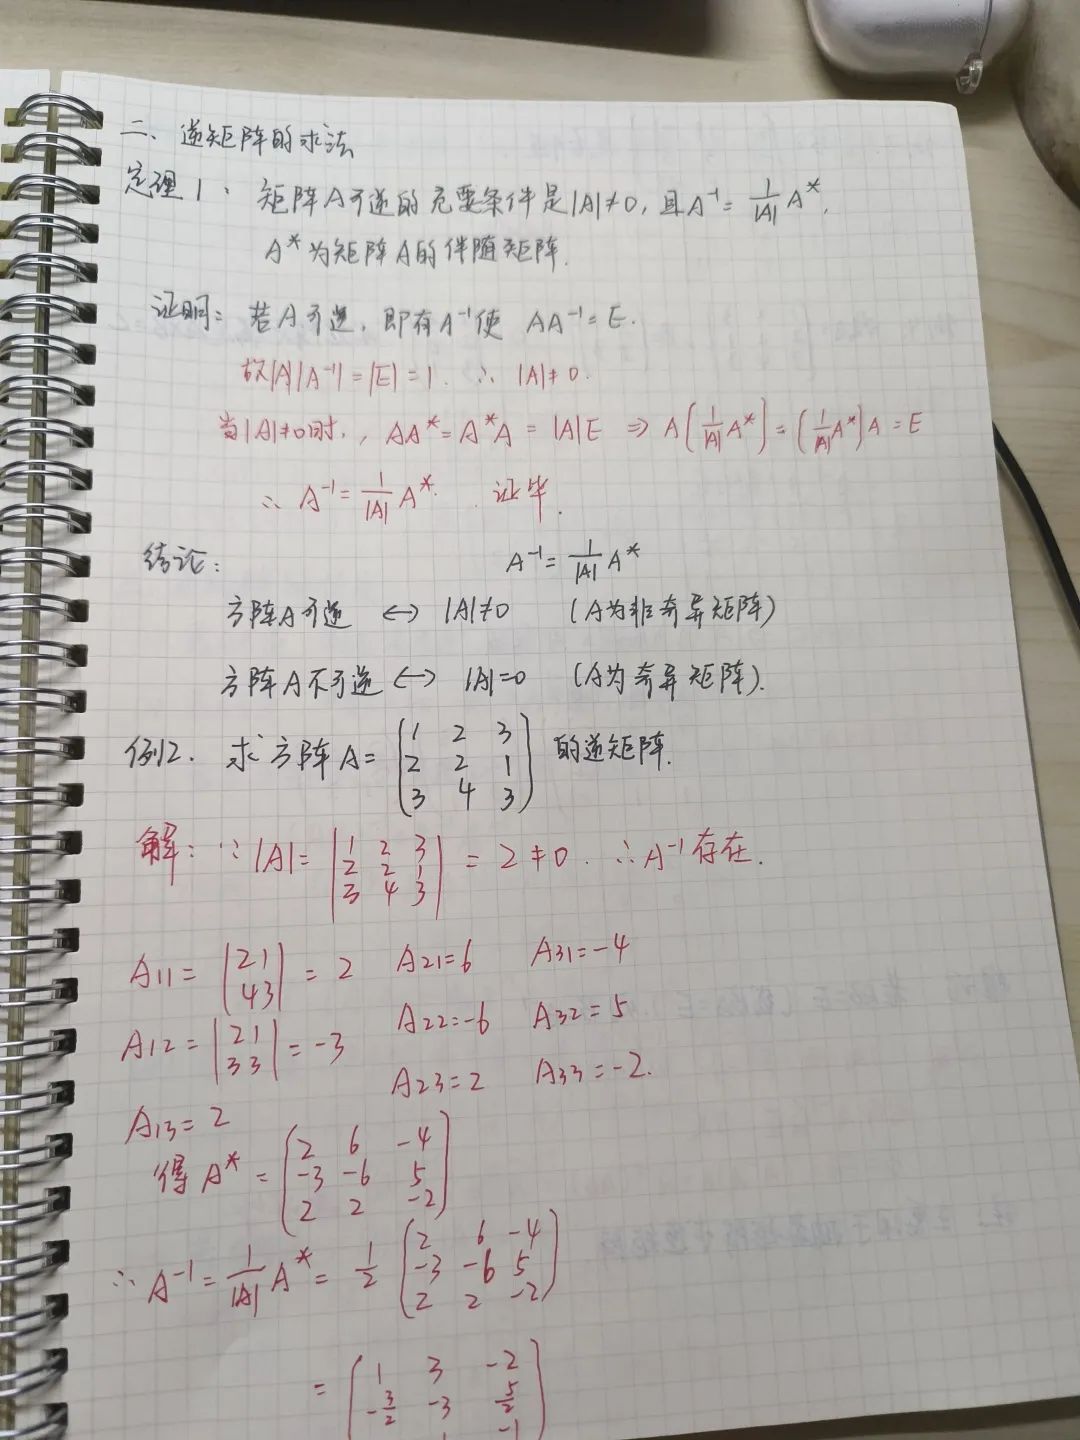 二、逆矩阵的求法
定理1：矩阵A可逆的充要条件是|A|≠0，且A⁻¹= 1/|A| A*，
A*为矩阵A的伴随矩阵.
证明：若A可逆，即有A⁻¹使 AA⁻¹=E.
故|A||A⁻¹|=|E|=1. ∴ |A|≠0.
当|A|≠0时，AA*=A*A=|A|E ⇒ A(1/|A| A*)=(1/|A| A*)A=E
∴ A⁻¹= 1/|A| A*. 证毕.
结论： A⁻¹= 1/|A| A*
方阵A可逆 ↔ |A|≠0 (A为非奇异矩阵)
方阵A不可逆 ↔ |A|=0 (A为奇异矩阵).
例2. 求方阵A= (1 2 3
2 2 1
3 4 3) 的逆矩阵.
解：∵|A|= |1 2 3
2 2 1
3 4 3| = 2≠0. ∴A⁻¹存在.
A11= |2 1
4 3| = 2 A21=6 A31=-4
A12= |2 1
3 3| = -3 A22=-6 A32=5
A23=2 A33=-2.
A13=2
得A*= (2 6 -4
-3 -6 5
2 2 -2)
∴A⁻¹= 1/|A| A*= 1/2 (2 6 -4
-3 -6 5
2 2 -2)
= (1 3 -2
-3/2 -3 5/2
-1)